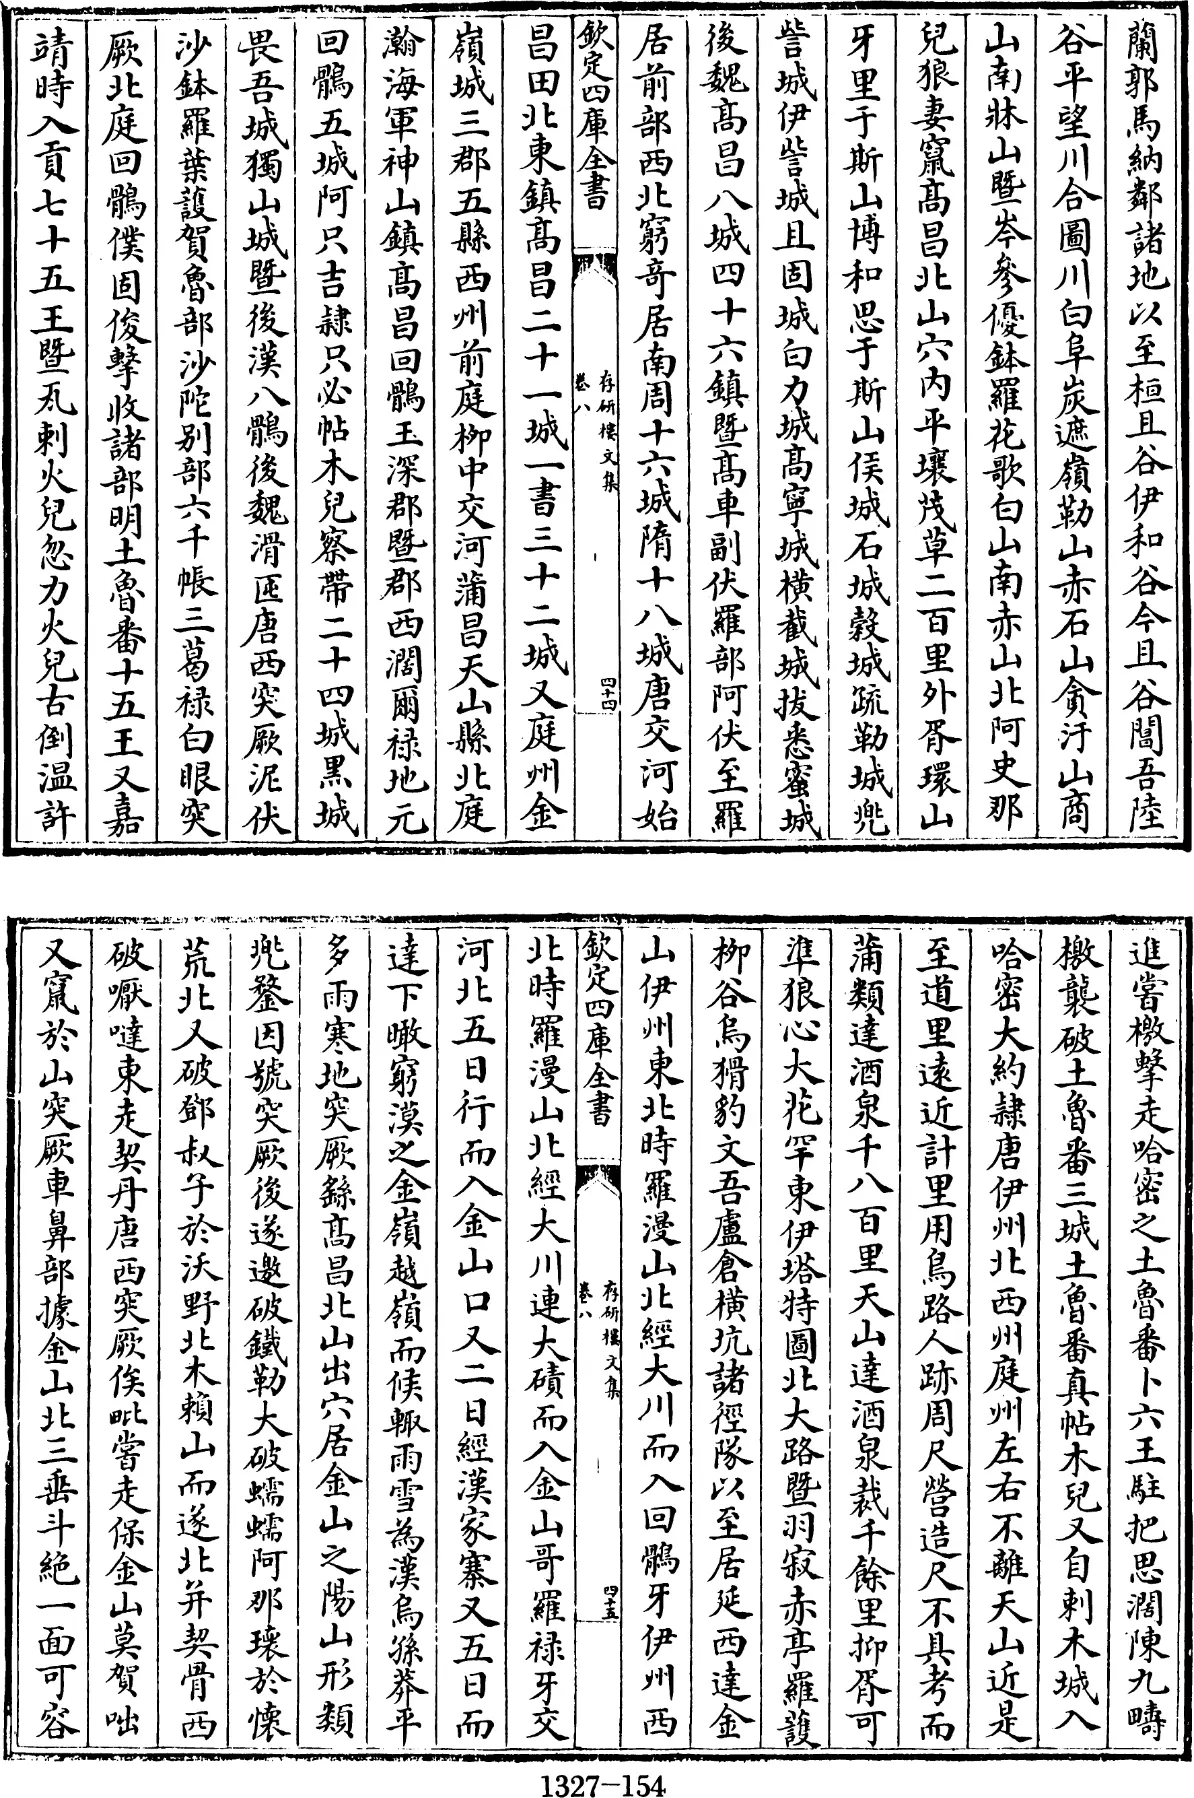 蘭郭馬納鄰諸地以至桓且谷伊和谷今且谷閶吾陸
谷平望川合圖川白阜炭遮嶺勒山赤石山貪汙山商
山南牀山暨岑參優鉢羅花歌白山南赤山北阿史那
兒狼妻竄高昌北山穴内平壤茂草二百里外胥環山
牙里于斯山博和思于斯山侯城石城穀城疏勒城兠
訾城伊訾城且固城白力城高寧城横截城抜悉蜜城
後魏高昌八城四十六鎮暨高車副伏羅部阿伏至羅
居前部西北窮竒居南周十六城隋十八城唐交河始
欽定四庫全書
存研樓文集
卷八
四十四
昌田北東鎮高昌二十一城一書三十二城又庭州金
嶺城三郡五縣西州前庭栁中交河蒲昌天山縣北庭
瀚海軍神山鎮高昌回鶻王深郡暨郡西濶爾禄地元
回鶻五城阿只吉隷只必帖木兒察帶二十四城黒城
畏吾城獨山城暨後漢八鶻後魏滑匝唐西突厥泥伏
沙鉢羅葉護賀魯部沙陀别部六千帳三葛禄白眼突
厥北庭回鶻僕固俊撃收諸部明土魯番十五王又嘉
靖時入貢七十五王暨炁剌火兒忽力火兒古倒温許
進嘗檄撃走哈密之土魯番卜六王駐把思濶陳九疇
檄襲破土魯番三城土魯番真帖木兒又自剌木城入
哈密大約隷唐伊州北西州庭州左右不離天山近是
至道里逺近計里用鳥路人跡周尺營造尺不具考而
蒲類達酒泉千八百里天山達酒泉裁千餘里抑胥可
準狼心大花罕東伊塔特圖北大路暨羽寂赤亭羅護
栁谷烏猾豹文吾盧倉横坑諸徑隊以至居延西達金
山伊州東北時羅漫山北經大川而入回鶻牙伊州西
欽定四庫全書
存研樓文集
卷八
四十五
北時羅漫山北經大川連大磧而入金山哥羅禄牙交
河北五日行而入金山口又二日經漢家寨又五日而
達下瞰窮漠之金嶺越嶺而候輙雨雪為漢烏孫莽平
多雨寒地突厥繇高昌北山出穴居金山之陽山形類
兠鍪因號突厥後遂邀破鐵勒大破蠕蠕阿那瓌於懷
荒北又破鄧叔子於沃野北木賴山而遂北并契骨西
破嚈噠東走契丹唐西突厥俟毗嘗走保金山莫賀咄
又竄於山突厥車鼻部據金山北三垂斗絶一面可容
1327—154